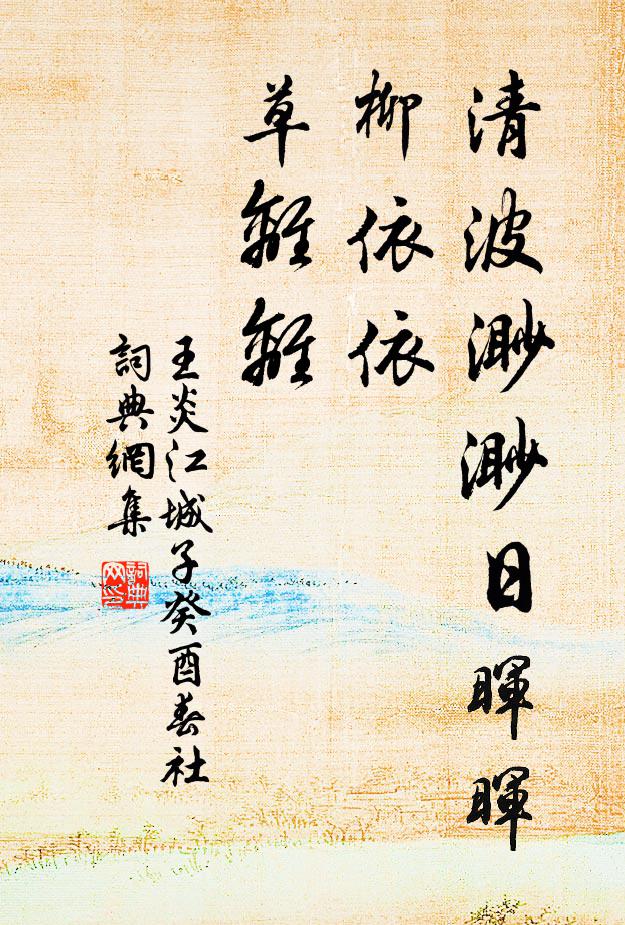 清波渺渺日暉暉
柳依依
草離離
王炎江城子癸酉春社
詞典網集
詞典
网印